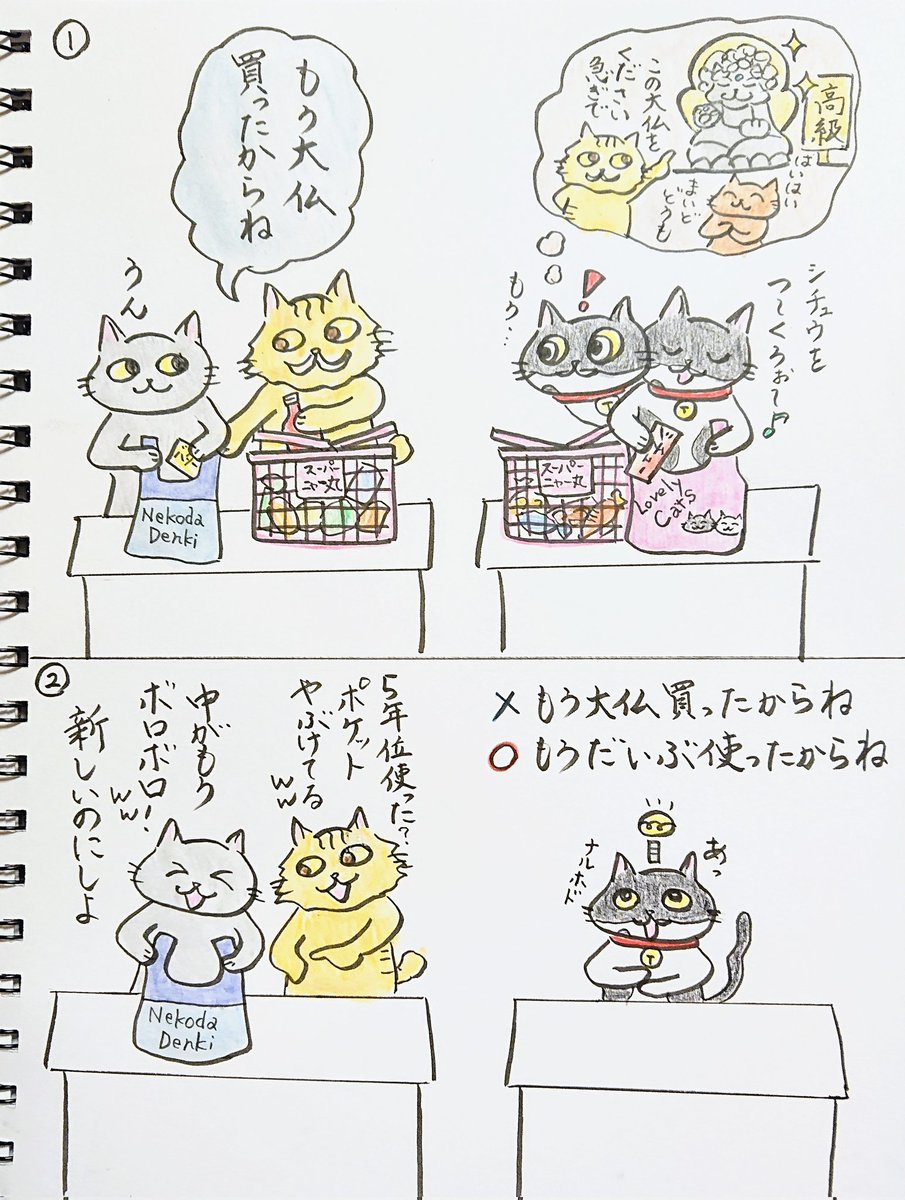 ①
もう大仏
買ったからね
うん
バター
Nekoda
Denki
スーパー
ニャー丸
この大仏を
ください
急ぎで
高級
はいはい
まいど
どうも
もう…
シチュウを
つ〜くろお〜て♪
スーパー
ニャー丸
Lovely
Cats
T
T
②
5年位使った?
ポケット
やぶけてる
ww
中がもう
ボロボロ!
ww
新しいのにしよ
Nekoda
Denki
×もう大仏買ったからね
○もうだいぶ使ったからね
あっ
ナルホド
T